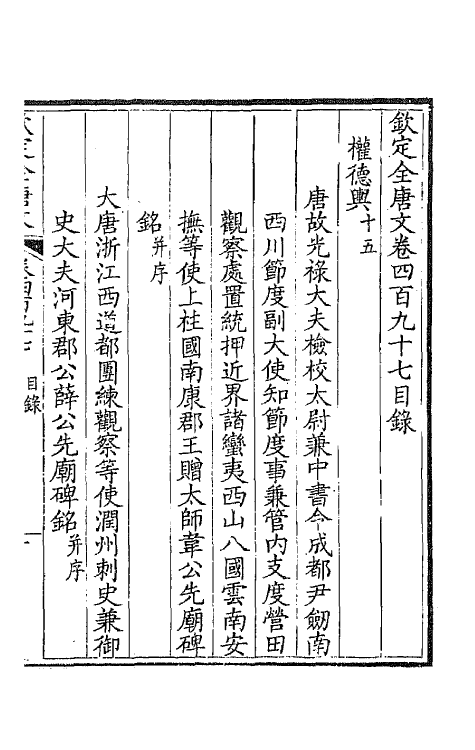 欽定全唐文卷四百九十七目錄
權德輿十五
唐故光祿大夫檢校太尉兼中書令成都尹劒南
西川節度副大使知節度事兼管內支度營田
觀察處置統押近界諸蠻夷西山八國雲南安
撫等使上柱國南康郡王贈太師韋公先廟碑
銘并序
大唐浙江西道都團練觀察等使潤州刺史兼御
史大夫河東郡公薛公先廟碑銘并序
目錄